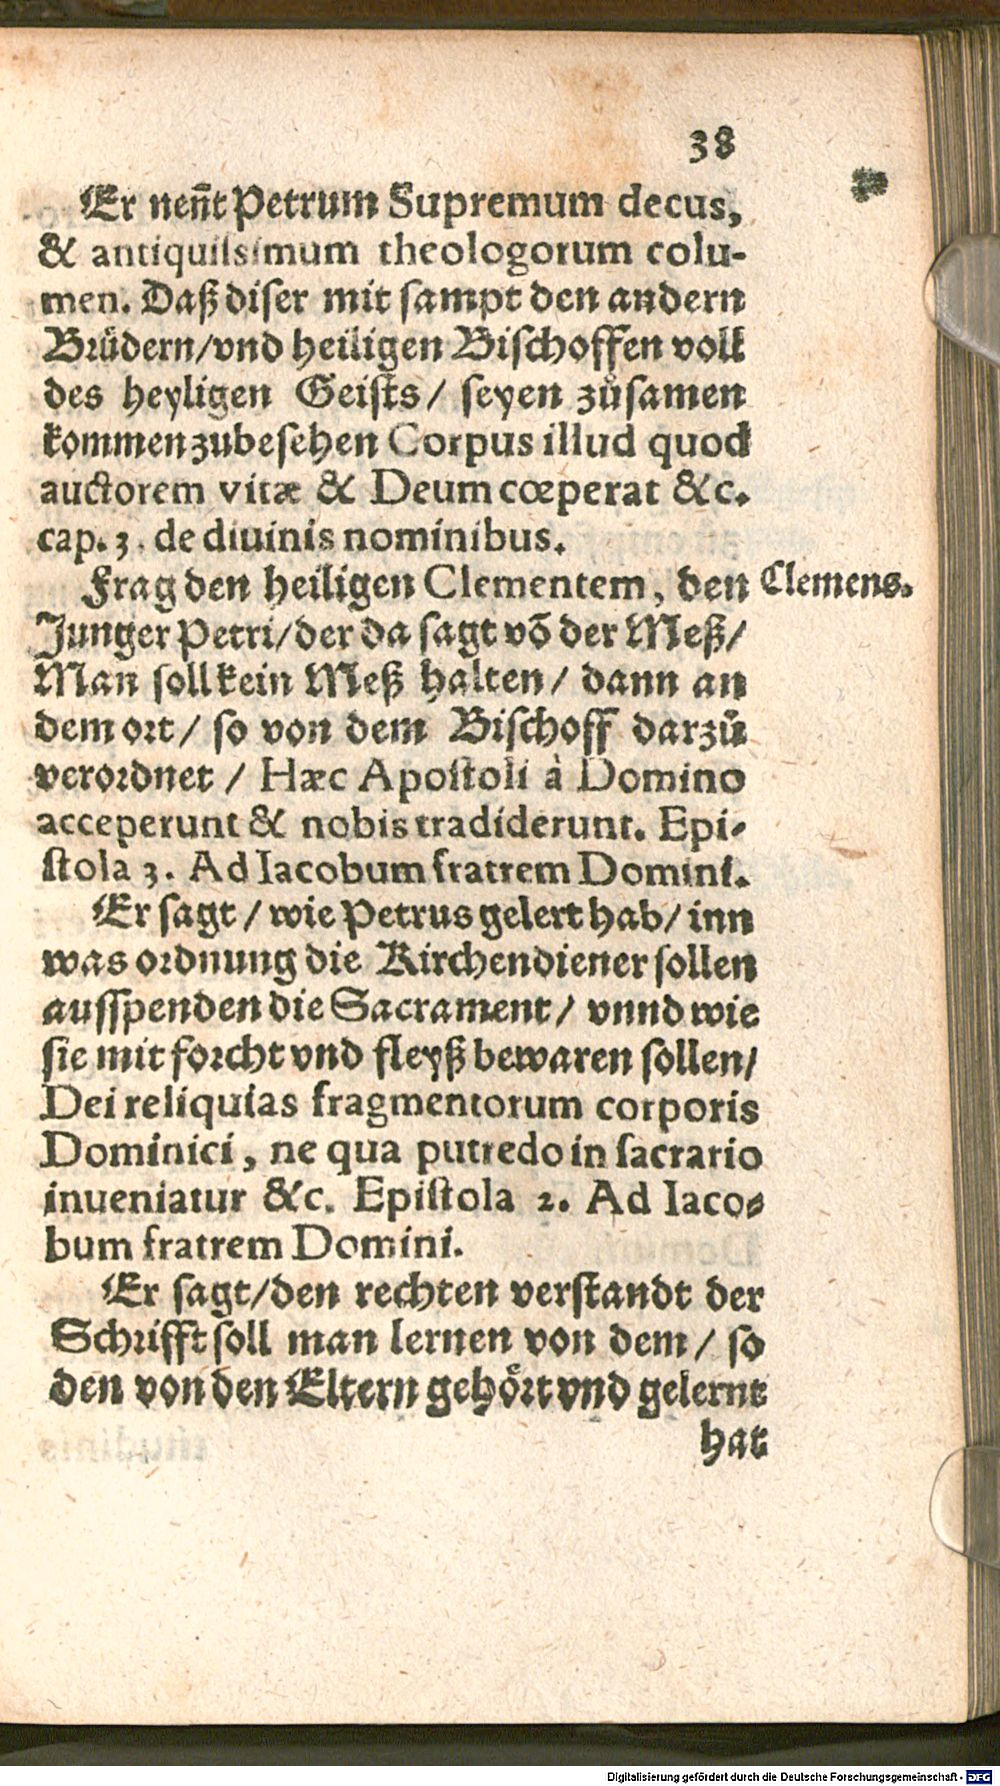 38
Er neñt Petrum Supremum decus,
& antiquissimum theologorum colu-
men. Daß diser mit sampt den andern
Brüdern/vnd heiligen Bischoffen voll
des heyligen Geists/ seyen zůsamen
kommen zubesehen Corpus illud quod
auctorem vitæ & Deum cœperat &c.
cap. 3. de diuinis nominibus.
Frag den heiligen Clementem, den
Clemens.
Junger Petri/der da sagt võ der Meß/
Man soll kein Meß halten/ dann an
dem ort/ so von dem Bischoff darzů
verordnet / Hæc Apostoli à Domino
acceperunt & nobis tradiderunt. Epi-
stola 3. Ad Iacobum fratrem Domini.
Er sagt/ wie Petrus gelert hab/ inn
was ordnung die Kirchendiener sollen
ausspenden die Sacrament/ vnnd wie
sie mit forcht vnd fleyß bewaren sollen/
Dei reliquias fragmentorum corporis
Dominici, ne qua putredo in sacrario
inueniatur &c. Epistola 2. Ad Iaco-
bum fratrem Domini.
Er sagt/den rechten verstandt der
Schrifft soll man lernen von dem/ so
den von den Eltern gehört vnd gelernt
hat
Digitalisierung gefördert durch die Deutsche Forschungsgemeinschaft - DFG